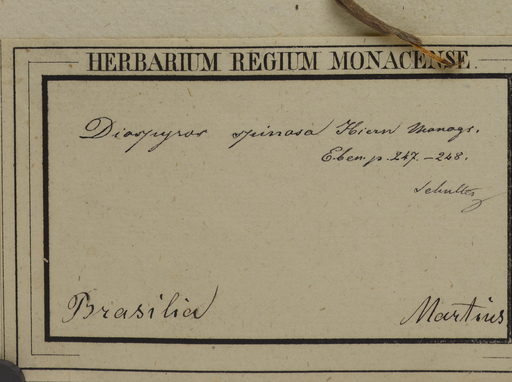 HERBARIUM REGIUM MONACENSE
Diospyros spinosa Hiern Monogr.
Eben. p. 247.-248.
Schultes
Brasilia Martius